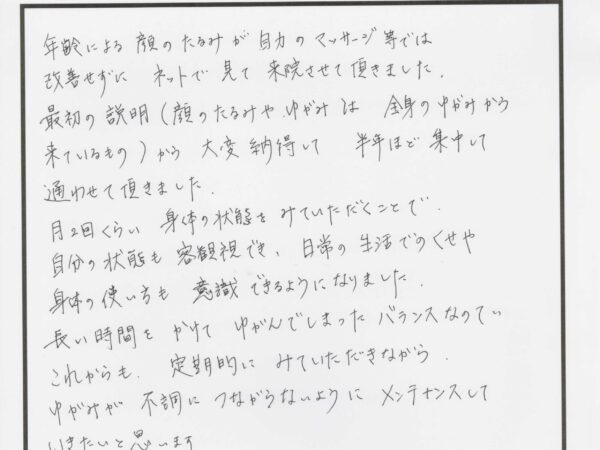 年齢による 顔のたるみが 自力の マッサージ等では
改善せずに ネットで 見て 来院させて 頂きました.
最初の 説明 (顔のたるみや ゆがみ は 全身の ゆがみから
来ているもの) から 大変 納得して 半年ほど 集中して
通わせて 頂きました.
月2回くらい 身体の状態を みていただくことで.
自分の 状態も 客観視でき、日常の 生活での くせや
身体の 使い方も 意識 できるように なりました.
長い 時間を かけて ゆがんでしまった バランスなので
これからも. 定期的に みていただきながら.
ゆがみが 不調に つながらないように メンテナンスして
いきたいと 思います